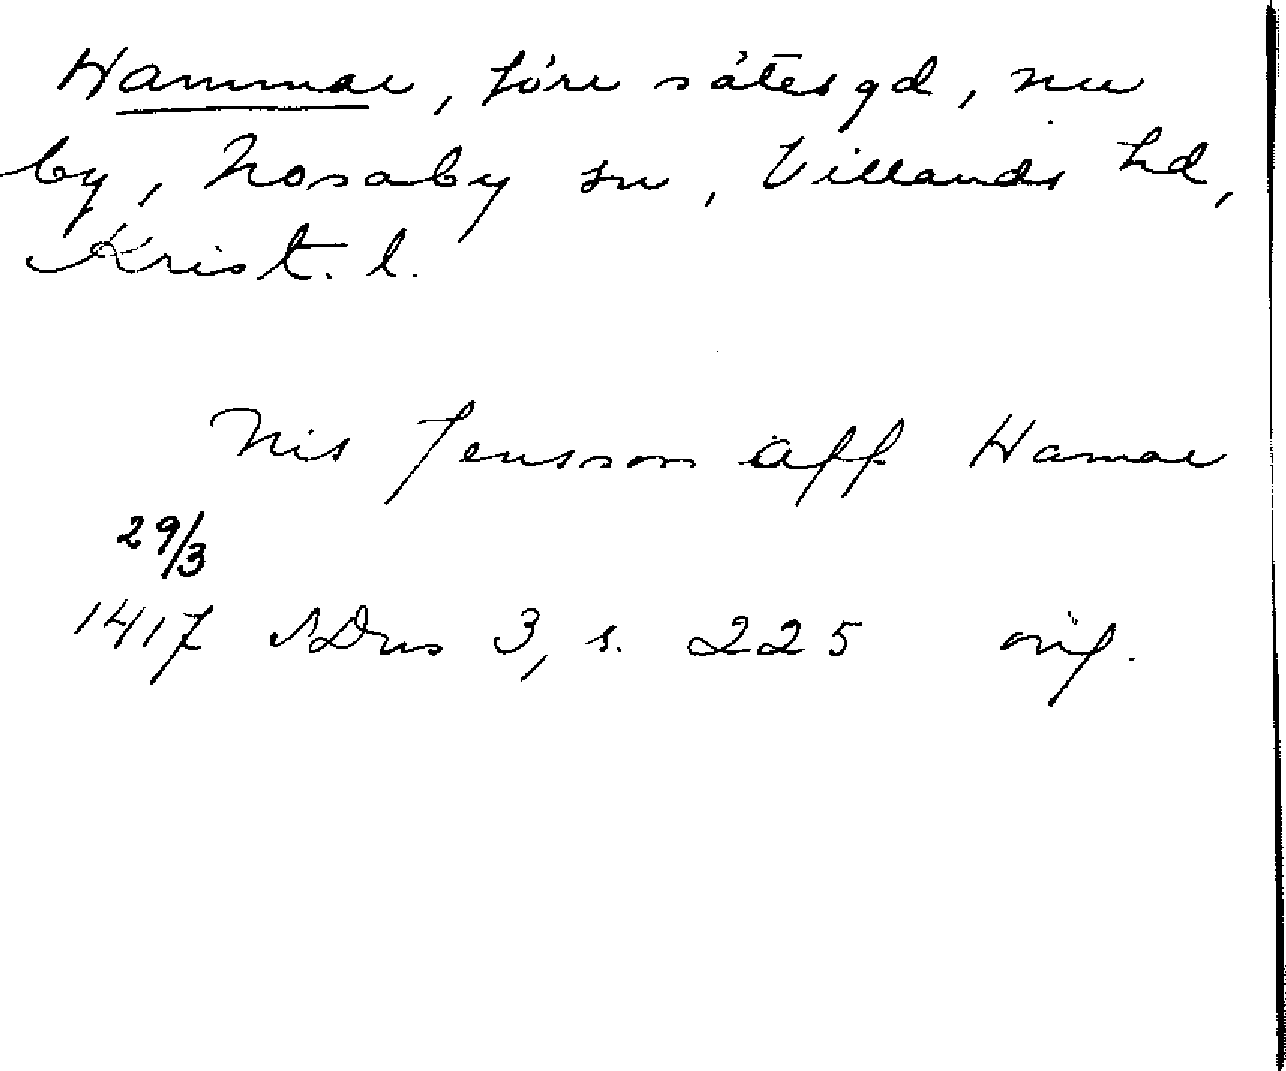 Hammar, förr sätesgd, nu
by, Nosaby sn, Villands hd,
Krist. l.
Nis Jensson aff Hamar
29/3
1417 SDns 3, s. 225 orig.